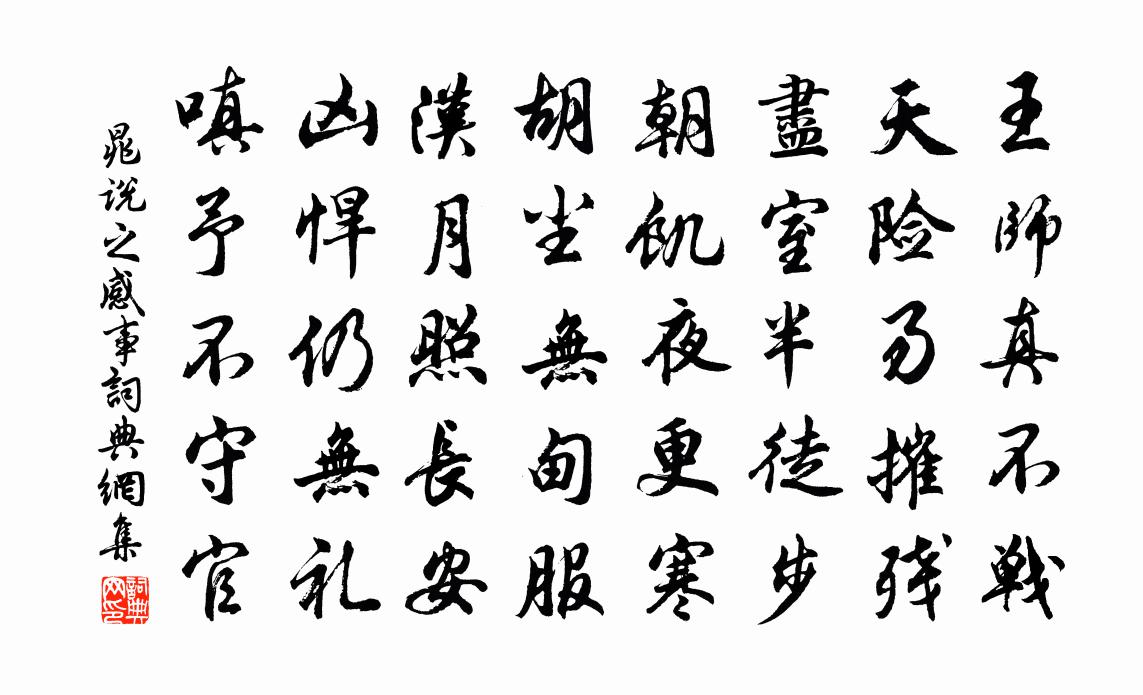 王師真不戦
天险易摧残
盡室半徒步
朝飢夜更寒
胡尘無甸服
漢月照長安
凶悍仍無礼
嗔予不守官
晁说之感事詞典網集
詞典网印